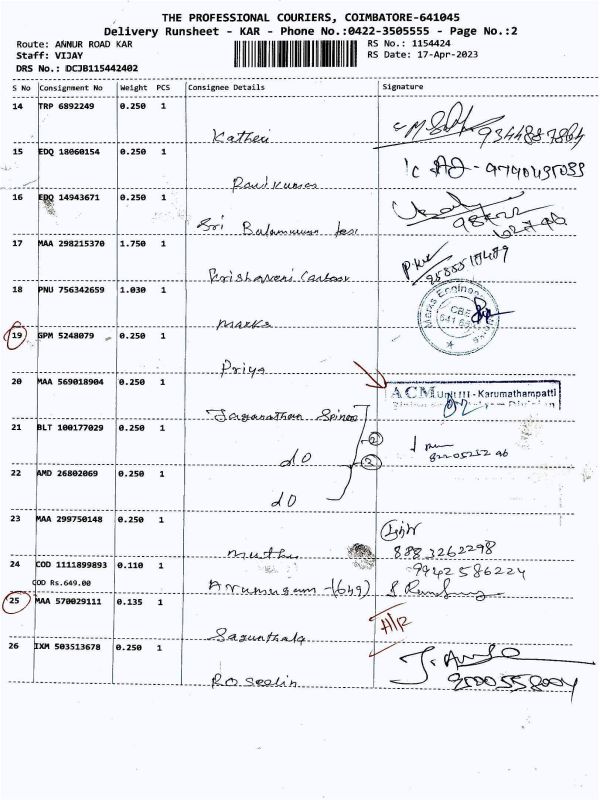 THE PROFESSIONAL COURIERS, COIMBATORE-641045
Delivery Runsheet - KAR - Phone No.:0422-3505555 - Page No.:2
Route: ANNUR ROAD KAR
RS No.: 1154424
Staff: VIJAY
RS Date: 17-Apr-2023
DRS No.: DCJB115442402
S No Consignment No Weight PCS Consignee Details Signature
14 TRP 6892249 0.250 1
Katheri 9344887864
15 EDQ 18060154 0.250 1
Ravikumar
16 EDQ 14943671 0.250 1
Sri
17 MAA 298215370 1.750 1
18 PNU 756342659 1.030 1
Marks
Marks Engineer
CBE
19 GPM 5248079 0.250 1
Priya
20 MAA 569018904 0.250 1
ACM Unit III - Karumathampatti
Division
21 BLT 100177029 0.250 1
dO
22 AMD 26802069 0.250 1
dO
23 MAA 299750148 0.250 1
Muthu 8883262298
24 COD 1111899893 0.110 1
9942586224
COD Rs.649.00
Arumugam -(649)
25 MAA 570029111 0.135 1
Sagunthala
26 IXM 503513678 0.250 1
Roseelin